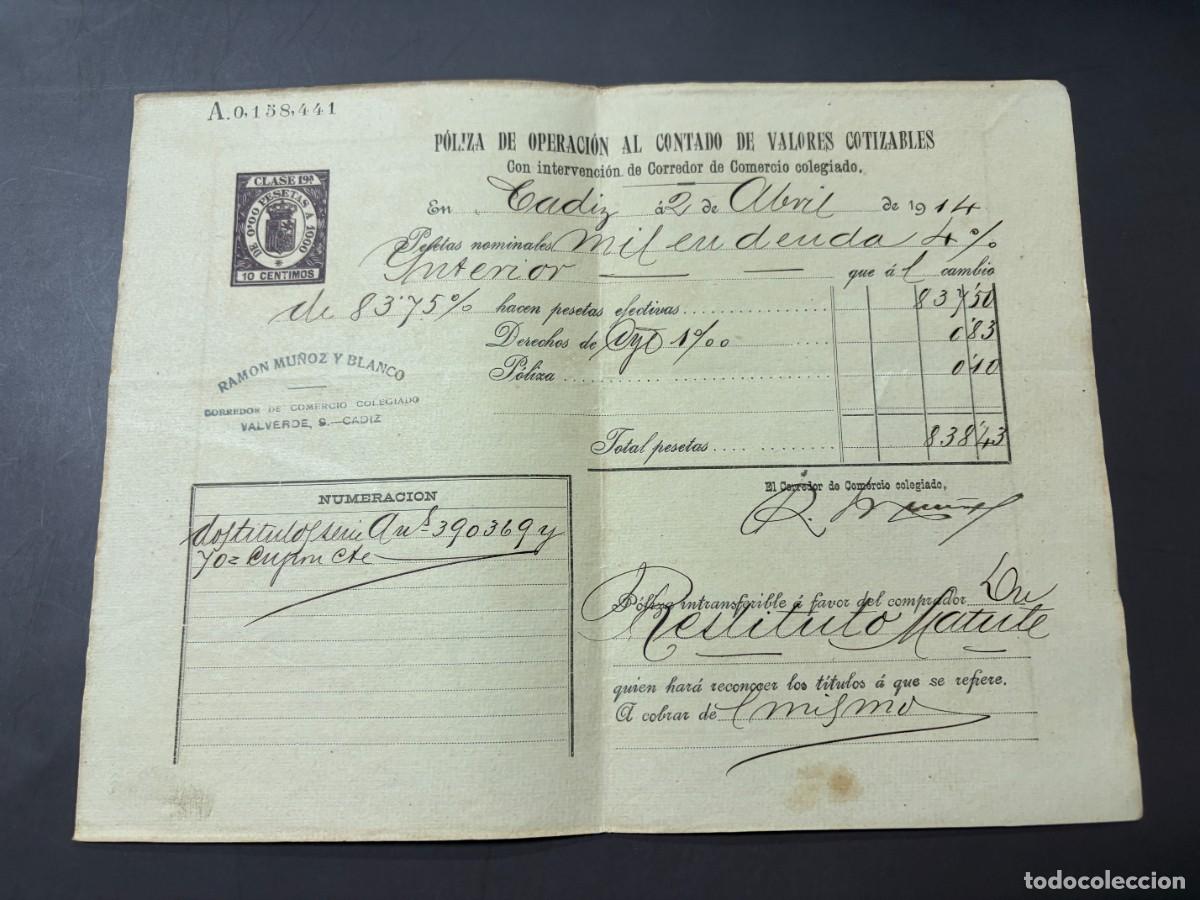 A.0,158,441
PÓLIZA DE OPERACIÓN AL CONTADO DE VALORES COTIZABLES
Con intervención de Corredor de Comercio colegiado.
CLASE 19ª
DE 0'00 PESETAS A 1000
10 CENTIMOS
En Cadiz á 2 de Abril de 1914
Pesetas nominales mil en deuda 4%
Interior que ál cambio
de 83'75% hacen pesetas efectivas 837'50
Derechos de 1‰ 0'83
Póliza 0'10
RAMON MUÑOZ Y BLANCO
CORREDOR DE COMERCIO COLEGIADO
VALVERDE, 9.—CADIZ
Total pesetas 838'43
El Corredor de Comercio colegiado,
NUMERACION
dos titulos serie A nos 390369 y
70= Cupon Cte
Póliza intransferible á favor del comprador Dn
Restituto Matute
quien hará reconocer los títulos á que se refiere.
A cobrar del mismo
todocoleccion